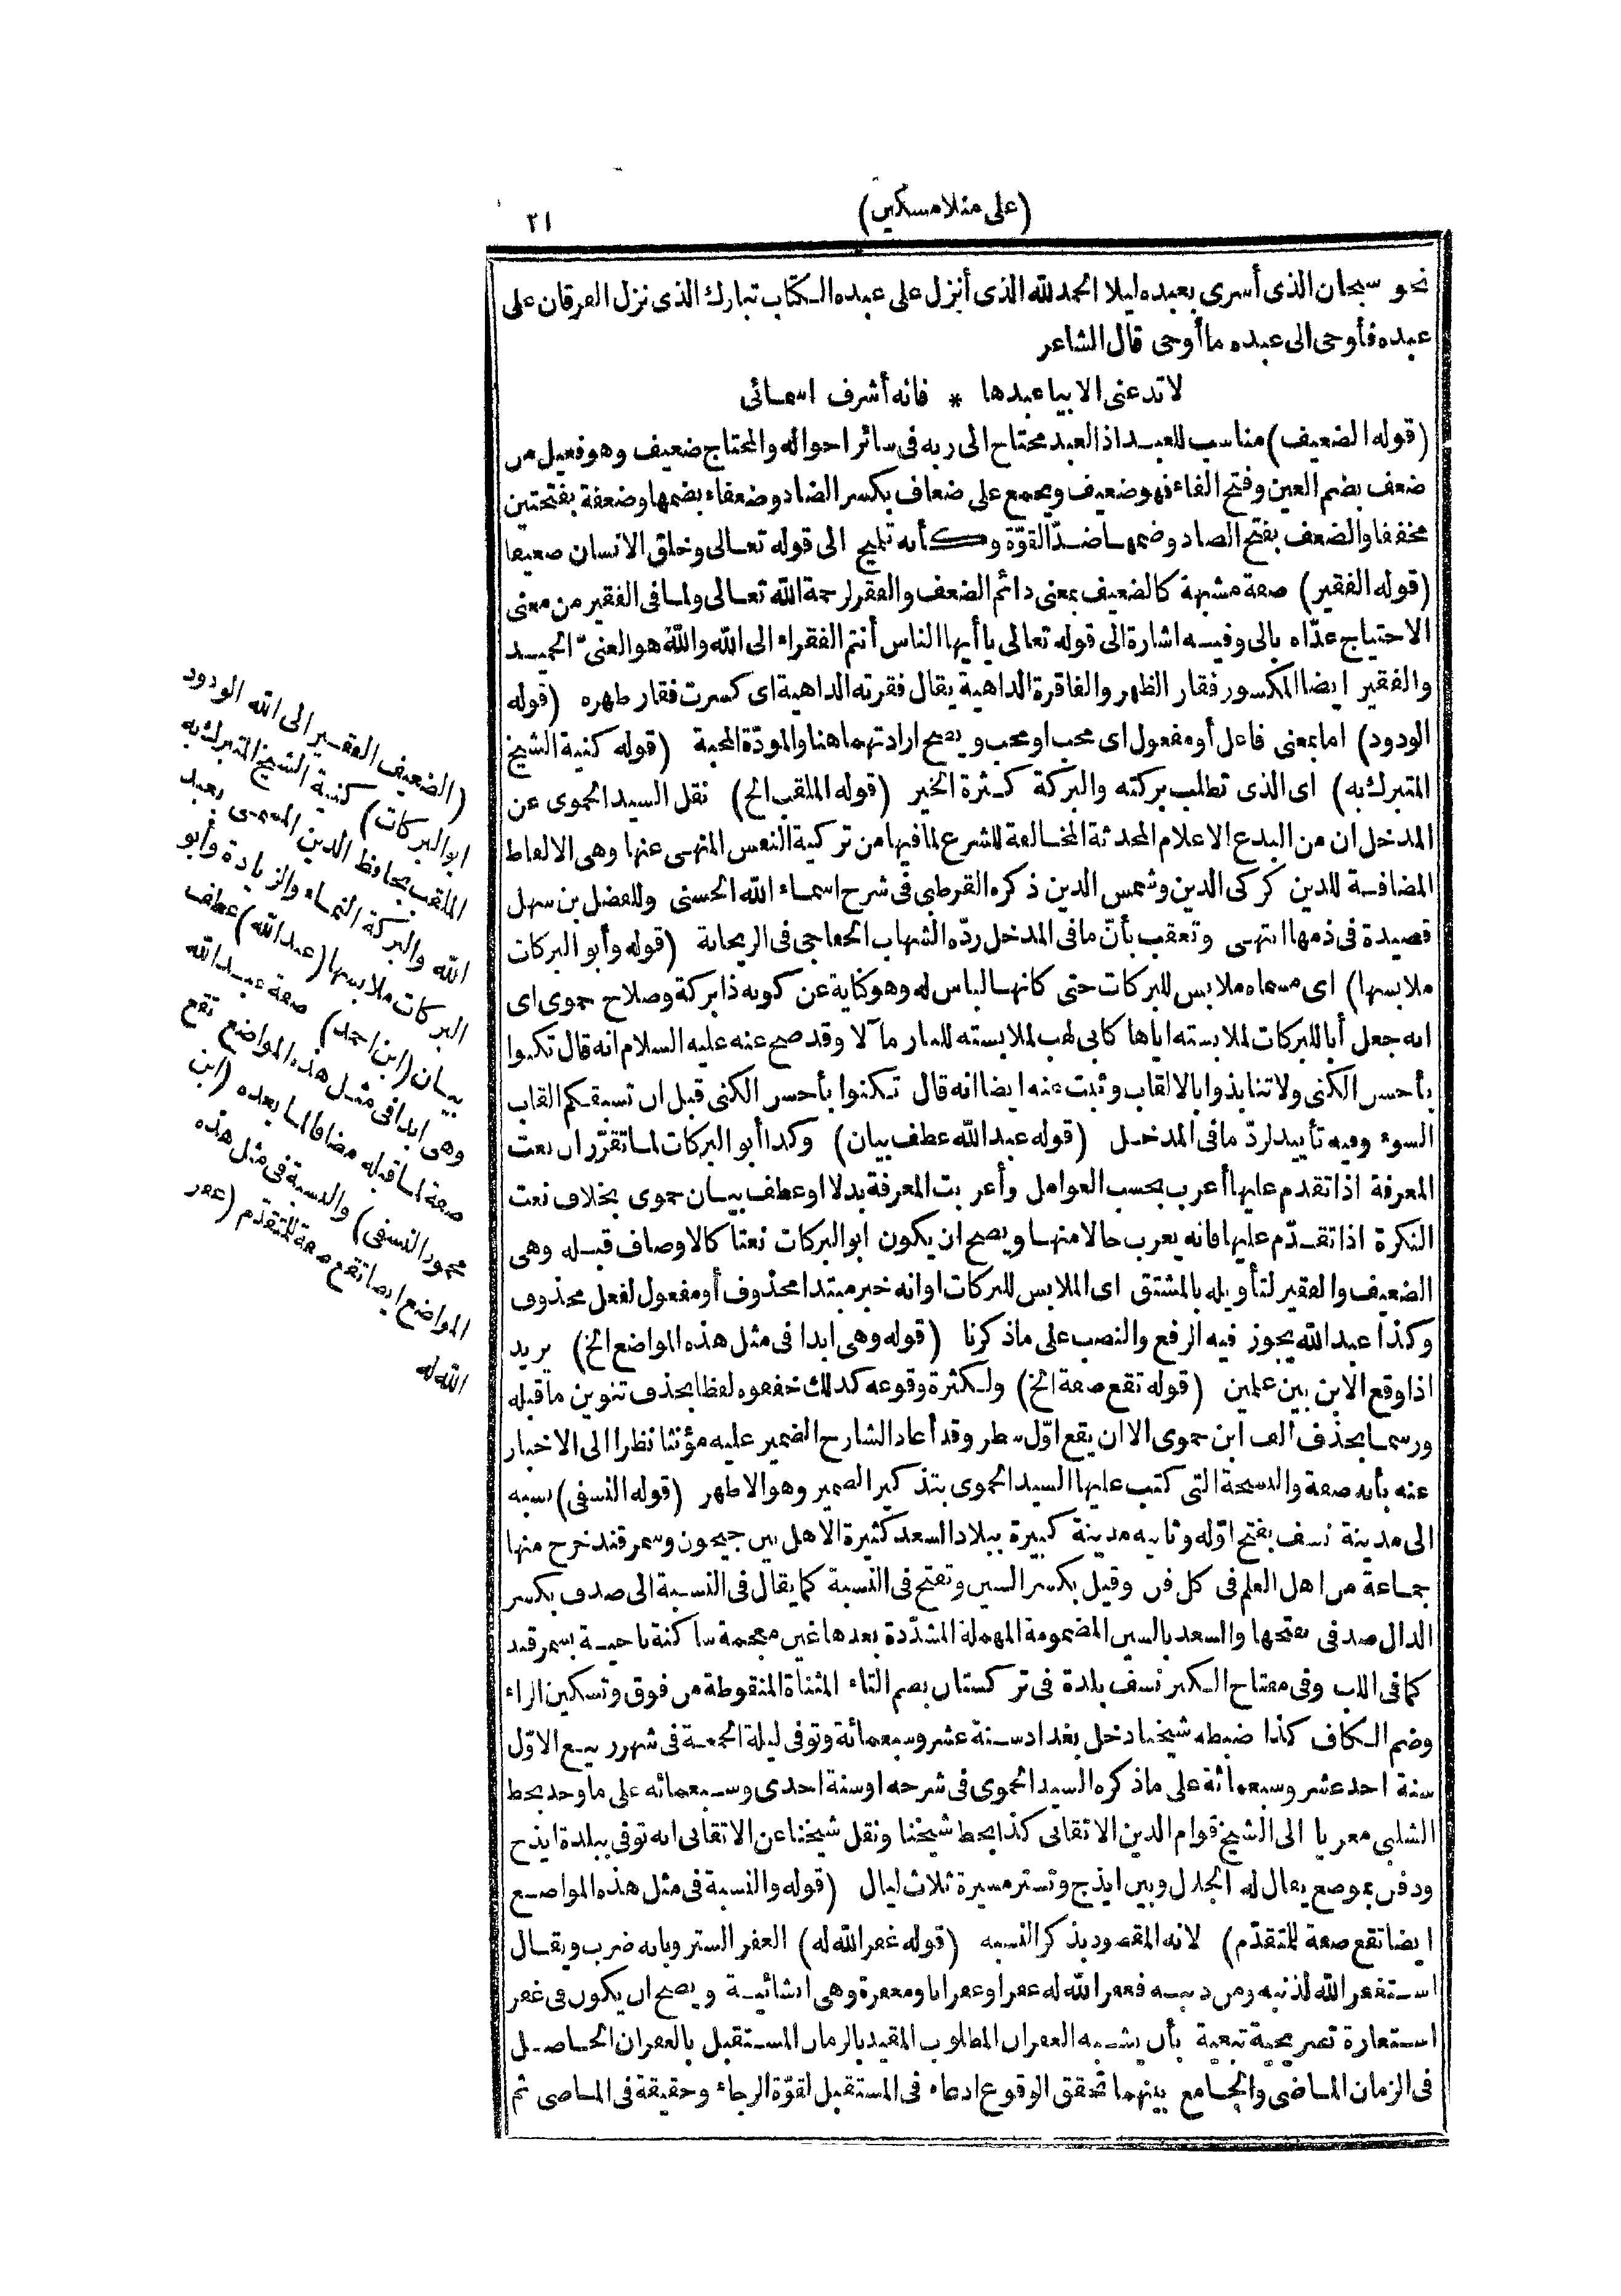 (على منلا مسكين)
٢١
نحو سبحان الذى أسرى بعبده ليلا الحمد لله الذى أنزل على عبده الكتاب تبارك الذى نزل الفرقان على
عبده فأوحى الى عبده ما أوحى قال الشاعر
لا تدعنى الا بيا عبدها * فانه أشرف اسمائى
(قوله الضعيف) مناسب للعبد اذ العبد محتاج الى ربه فى سائر احواله والمحتاج ضعيف وهو فعيل من
ضعف بضم العين وفتح الفاء فهو ضعيف ويجمع على ضعاف بكسر الضاد وضعفاء بضمها وضعفة بفتحتين
مخففا والضعف بفتح الضاد وضمها ضدّ القوّة وكأنه تلميح الى قوله تعالى وخلق الانسان ضعيفا
(قوله الفقير) صفة مشبهة كالضعيف بمعنى دائم الضعف والفقر لرحمة الله تعالى ولما فى الفقير من معنى
الاحتياج عدّاه بالى وفيه اشارة الى قوله تعالى يا أيها الناس أنتم الفقراء الى الله والله هو الغنىّ الحميد
والفقير ايضا المكسور فقار الظهر والفاقرة الداهية يقال فقرته الداهية اى كسرت فقار ظهره (قوله
الودود) اما بمعنى فاعل أو مفعول اى محب او محب ويصح ارادتهما هنا والمودّة المحبة (قوله كنية الشيخ
المتبرك به) اى الذى تطلب بركته والبركة كثرة الخير (قوله الملقب الخ) نقل السيد الحموى عن
المدخل ان من البدع الاعلام المحدثة المخالفة للشرع لما فيها من تزكية النفس المنهى عنها وهى الالفاظ
المضافة للدين كزكى الدين وشمس الدين ذكره القرطبى فى شرح اسماء الله الحسنى وللفضل بن سهل
قصيدة فى ذمها انتهى وتعقب بأنّ ما فى المدخل ردّه الشهاب الخفاجى فى الريحانة (قوله وأبو البركات
ملابسها) اى مسماه ملابس للبركات حتى كانها لباس له وهو كناية عن كونه ذا بركة وصلاح حموى اى
انه جعل أبا للبركات لملابسته اياها كابى لهب لملابسته للنار مآلا وقد صح عنه عليه السلام انه قال تكنوا
بأحسن الكنى ولا تنابذوا بالالقاب وثبت عنه ايضا انه قال تكنوا بأحسن الكنى قبل ان تسبقكم القاب
السوء وفيه تأييد لردّ ما فى المدخل (قوله عبد الله عطف بيان) وكذا أبو البركات لما تقرّر ان نعت
المعرفة اذا تقدم عليها أعرب بحسب العوامل وأعربت المعرفة بدلا او عطف بيان حموى بخلاف نعت
النكرة اذا تقدّم عليها فانه يعرب حالا منها ويصح ان يكون ابو البركات نعتا كالاوصاف قبله وهى
الضعيف والفقير لتأويله بالمشتق اى الملابس للبركات او انه خبر مبتدا محذوف أو مفعول لفعل محذوف
وكذا عبد الله يجوز فيه الرفع والنصب على ما ذكرنا (قوله وهى ابدا فى مثل هذه المواضع الخ) يريد
اذا وقع الابن بين علمين (قوله تقع صفة الخ) ولكثرة وقوعه كذلك خففوه لفظا بحذف تنوين ما قبله
ورسما بحذف الف ابن حموى الا ان يقع اوّل سطر وقد أعاد الشارح الضمير عليه مؤنثا نظرا الى الاخبار
عنه بأنه صفة والنسخة التى كتب عليها السيد الحموى بتذكير الضمير وهو الاظهر (قوله النسفى) نسبه
الى مدينة نسف بفتح اوّله وثانيه مدينة كبيرة ببلاد السغد كثيرة الاهل بين جيحون وسمرقند خرج منها
جماعة من اهل العلم فى كل فن وقيل بكسر السين وتفتح فى النسبة كما يقال فى النسبة الى صدف بكسر
الدال صدفى بفتحها والسغد بالسين المضمومة المهملة المشدّدة بعدها غين معجمة ساكنة ناحية بسمرقند
كما فى اللب وفى مفتاح الكنز نسف بلدة فى تركستان بضم التاء المثناة المنقوطة من فوق وتسكين الراء
وضم الكاف كذا ضبطه شيخنا دخل بغداد سنة عشر وسبعمائة وتوفى ليلة الجمعة فى شهر ربيع الاوّل
سنة احد عشر وسبعمائة على ما ذكره السيد الحموى فى شرحه او سنة احدى وسبعمائه على ما وجد بخط
الشلبى معزيا الى الشيخ قوام الدين الاتقانى كذا بخط شيخنا ونقل شيخنا عن الاتقانى انه توفى ببلدة ايذج
ودفن بموضع يقال له الجلال وبين ايذج وتستر مسيرة ثلاث ليال (قوله والنسبة فى مثل هذه المواضع
ايضا تقع صفة للمتقدّم) لانه المقصود بذكر النسبه (قوله غفر الله له) الغفر الستر وبابه ضرب ويقال
استغفر الله لذنبه ومن ذنبه فغفر الله له غفرا وغفرانا ومغفرة وهى انشائية ويصح ان يكون فى غفر
استعارة تصريحية تبعية بأن يشبه الغفران المطلوب المقيد بالزمان المستقبل بالغفران الحاصل
فى الزمان الماضى والجامع بينهما تحقق الوقوع ادعاء فى المستقبل لقوّة الرجاء وحقيقة فى الماضى ثم
(الضعيف الفقير الى الله الودود
ابو البركات) كنية الشيخ المتبرك به
الملقب بحافظ الدين المسمى بعبد
الله والبركة النماء والزيادة وأبو
البركات ملابسها (عبد الله) عطف
بيان (ابن احمد) صفة عبد الله
وهى ابدا فى مثل هذه المواضع تقع
صفة لما قبله مضافا لما بعده (ابن
محمود النسفى) والنسبة فى مثل هذه
المواضع ايضا تقع صفة للمتقدّم (غفر
الله له